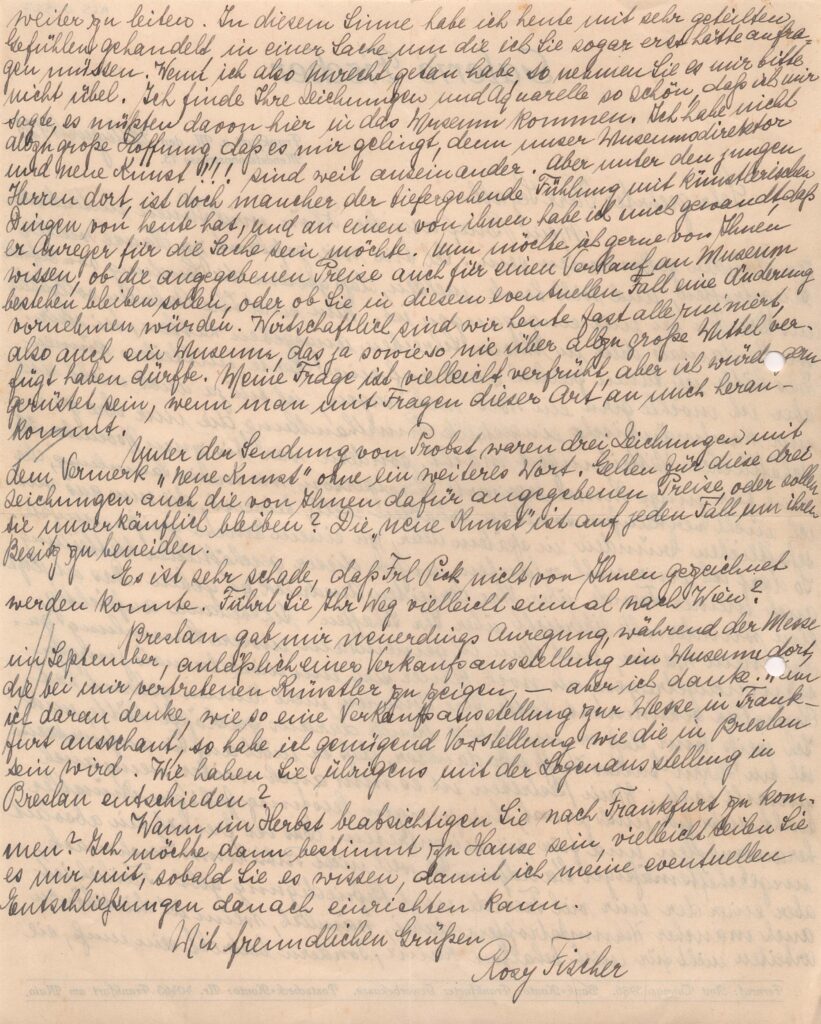 weiter zu leiten. In diesem Sinne habe ich heute mit sehr geteilten
Gefühlen gehandelt in einer Sache um die ich Sie sogar erst hätte anfra-
gen müssen. Wenn ich also Unrecht getan habe, so nehmen Sie es mir bitte
nicht übel. Ich finde Ihre Zeichnungen und Aquarelle so schön, daß ich mir
sagte, es müßten davon hier in das Museum kommen. Ich habe nicht
allzu große Hoffnung daß es mir gelingt, denn unser Museumsdirektor
und neue Kunst !!!! sind weit auseinander. Aber unter den jungen
Herren dort, ist doch mancher der tiefergehende Fühlung mit künstlerischen
Dingen von heute hat, und an einen von ihnen habe ich mich gewandt, daß
er Anreger für die Sache sein möchte. Nun möchte ich gerne von Ihnen
wissen, ob die angegebenen Preise auch für einen Verkauf an Museum
bestehen bleiben sollen, oder ob Sie in diesem eventuellen Fall eine Änderung
vornehmen würden. Wirtschaftlich sind wir heute fast alle ruiniert,
also auch ein Museum, das ja sowieso nie über allzu große Mittel ver-
fügt haben dürfte. Meine Frage ist vielleicht verfrüht, aber ich würde gern
gerüstet sein, wenn man mit Fragen dieser Art an mich heran-
kommt.
Unter der Sendung von Probst waren drei Zeichnungen mit
dem Vermerk „Neue Kunst" ohne ein weiteres Wort. Gelten für diese drei
Zeichnungen auch die von Ihnen dafür angegebenen Preise, oder sollen
sie unverkäuflich bleiben? Die „neue Kunst" ist auf jeden Fall um ihren
Besitz zu beneiden.
Es ist sehr schade, daß Frl Pick nicht von Ihnen gezeichnet
werden konnte. Führt Sie Ihr Weg vielleicht einmal nach Wien?
Breslau gab mir neuerdings Anregung, während der Messe
im September, anläßlich einer Verkaufsausstellung im Museum dort,
die bei mir vertretenen Künstler zu zeigen, — aber ich danke. Wenn
ich daran denke, wie so eine Verkaufsausstellung zur Messe in Frank-
furt ausschaut, so habe ich genügend Vorstellung wie die in Breslau
sein wird. Wie haben Sie übrigens mit der Logenausstellung in
Breslau entschieden?
Wann im Herbst beabsichtigen Sie nach Frankfurt zu kom-
men? Ich möchte dann bestimmt zu Hause sein, vielleicht teilen Sie
es mir mit, sobald Sie es wissen, damit ich meine eventuellen
Entschließungen danach einrichten kann.
Mit freundlichen Grüßen
Rosy Fischer